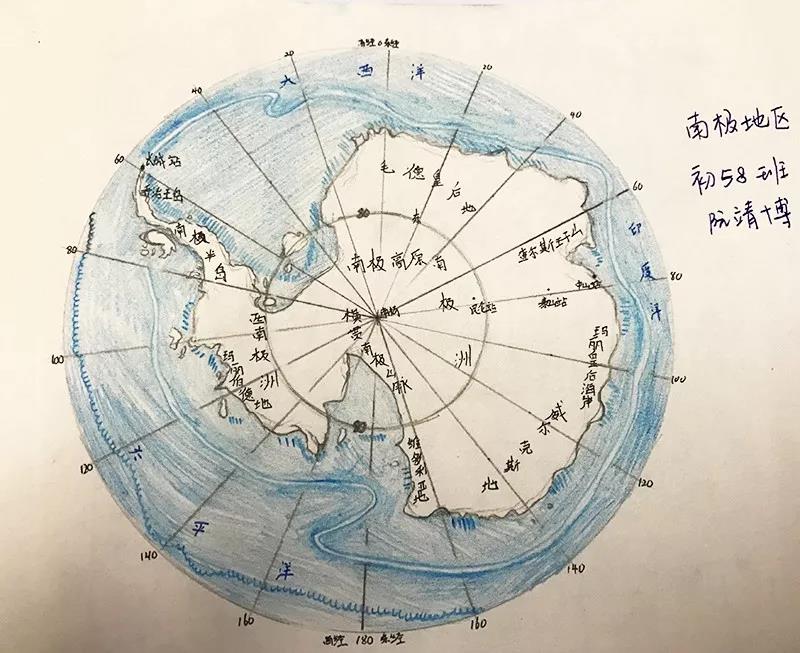 南极地区
初58班
阮靖博
西经0东经
20
20
大西洋
40
90
60
长城站
乔治王岛
毛德皇后地
60
印度洋
南极半岛
80
80
东南极洲
南极高原
查尔斯王子山
80
中山站
泰山站
昆仑站
横贯南极山脉
西南极洲
玛丽伯德地
玛丽皇后海岸
100
100
80
威尔克斯地
维多利亚地
120
120
太平洋
140
140
160
160
西经 180 东经